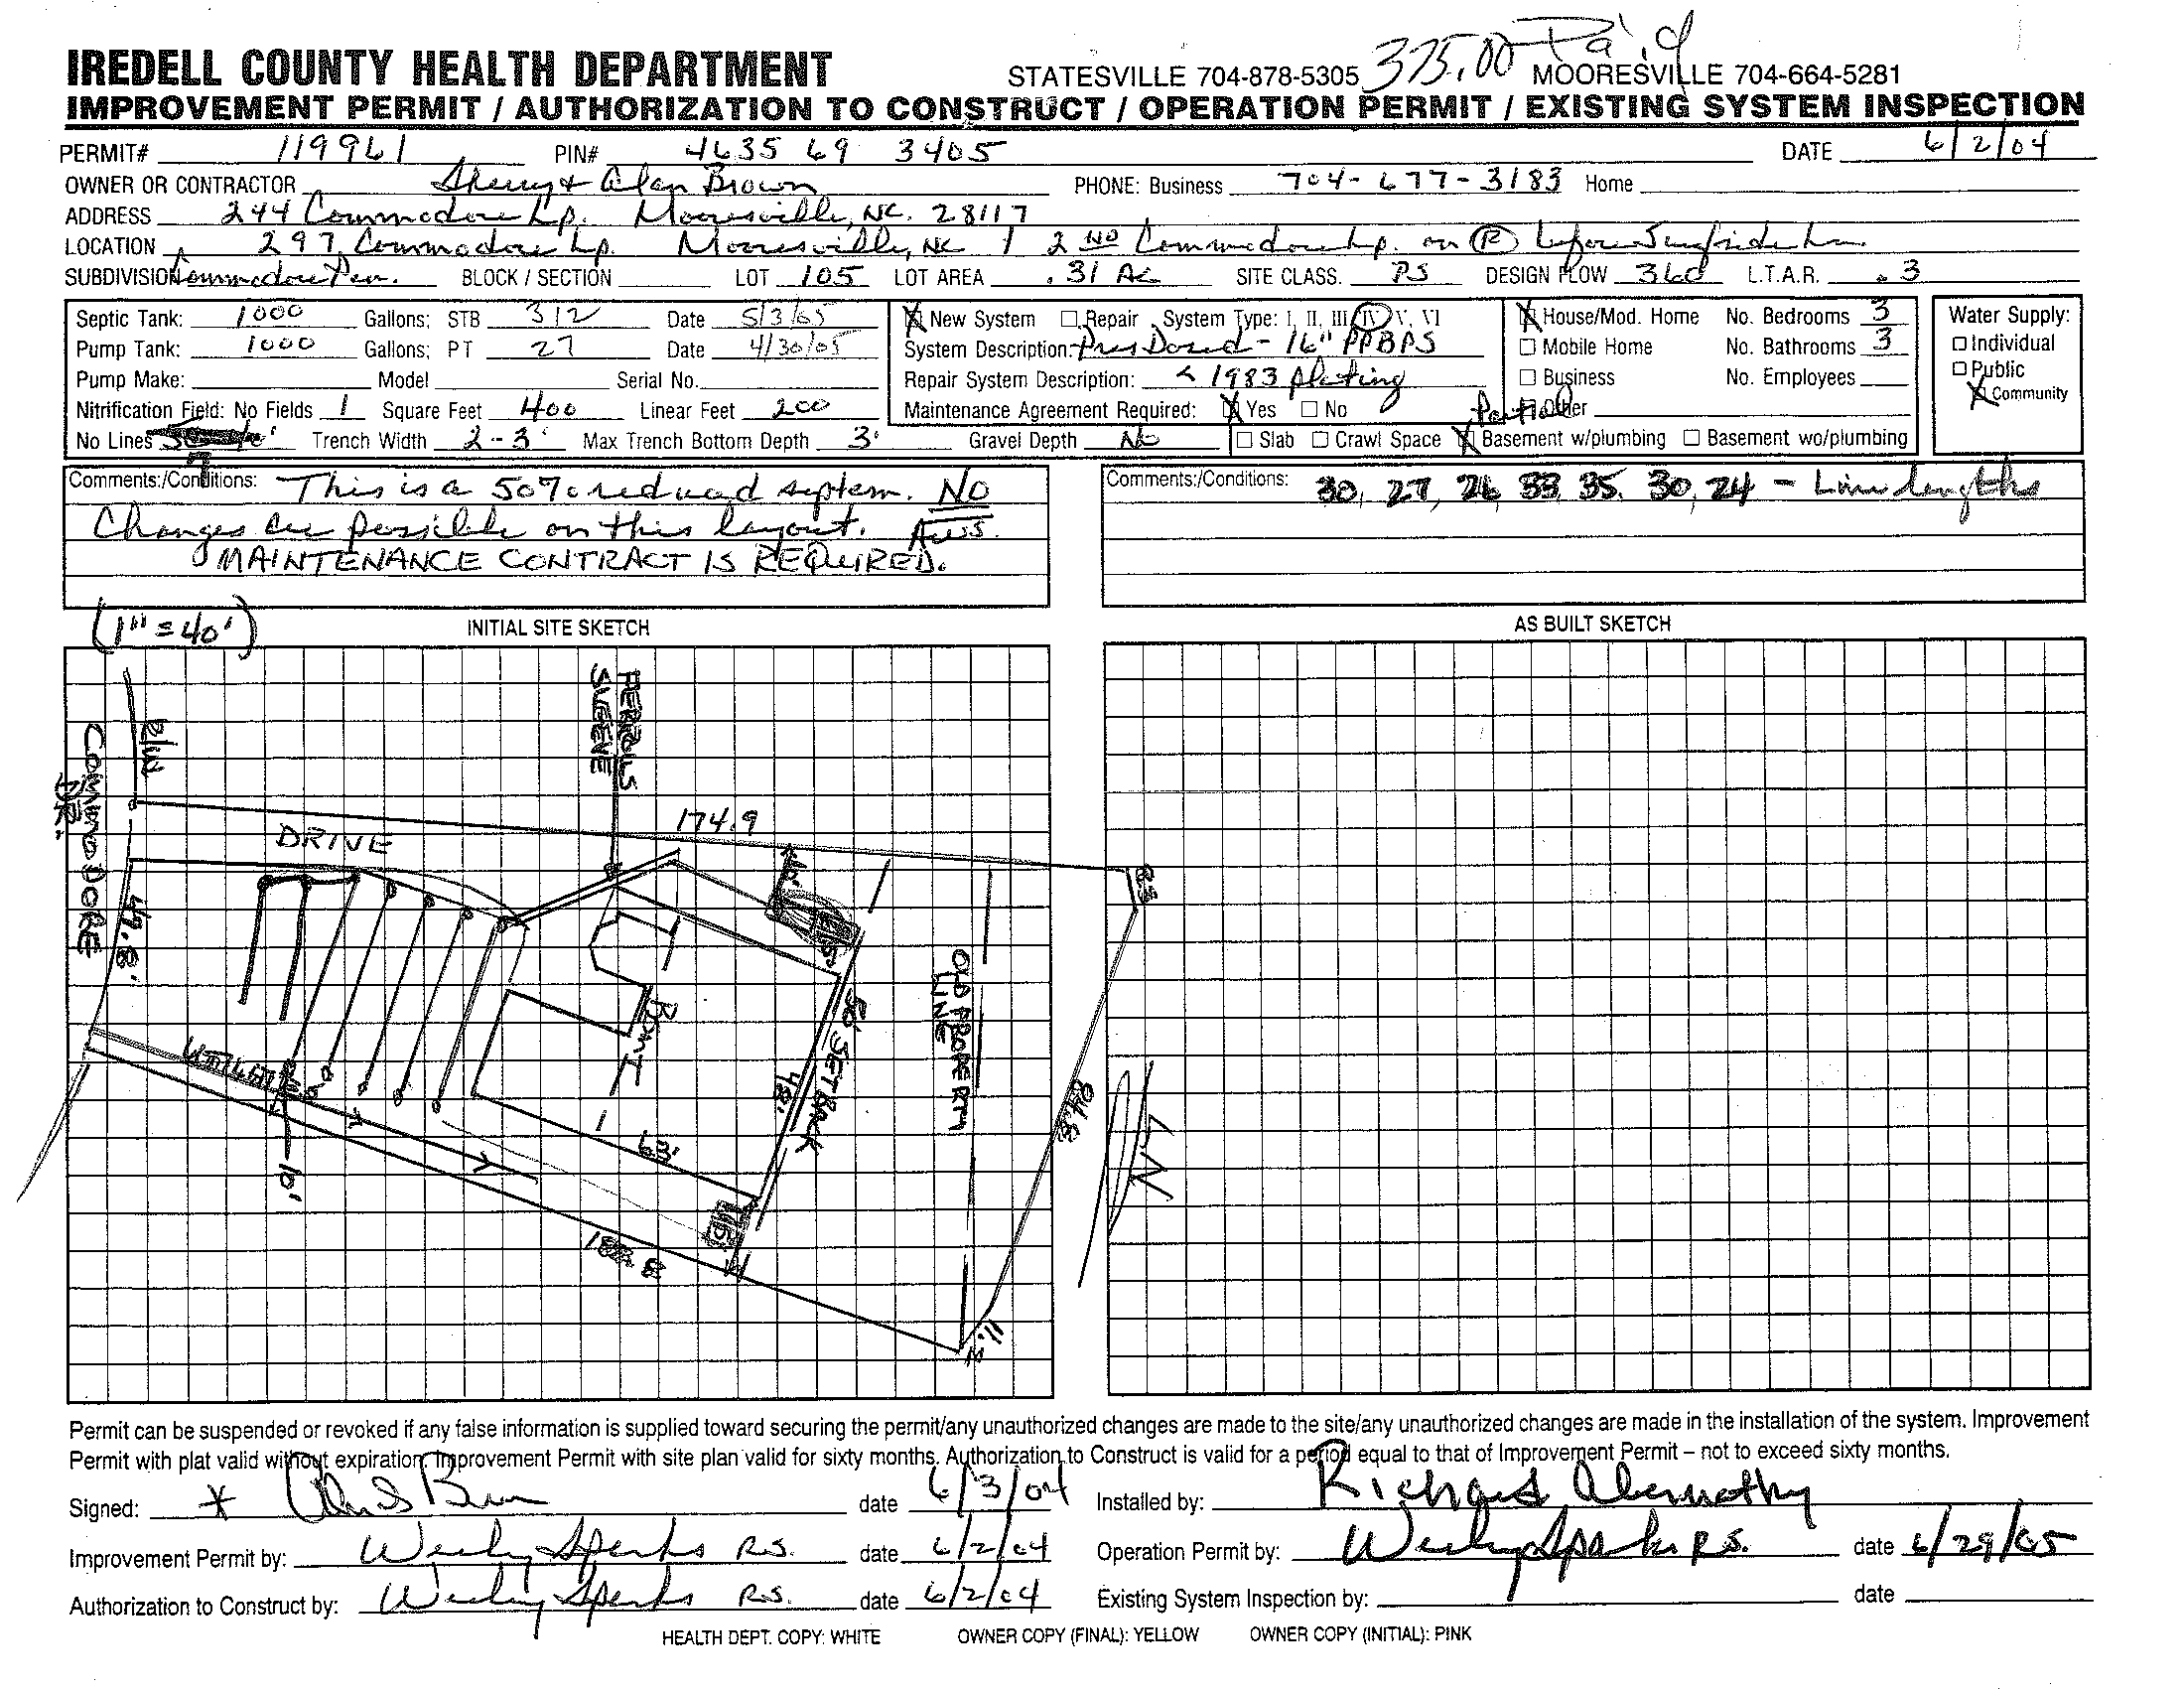 375.00 Paid
IREDELL COUNTY HEALTH DEPARTMENT STATESVILLE 704-878-5305 MOORESVILLE 704-664-5281
IMPROVEMENT PERMIT / AUTHORIZATION TO CONSTRUCT / OPERATION PERMIT / EXISTING SYSTEM INSPECTION
PERMIT# 119961 PIN# 4635 69 3405 DATE 6/2/04
OWNER OR CONTRACTOR Sherry & Alan Brown PHONE: Business 704-677-3183 Home
ADDRESS 244 Commodore Lp. Mooresville, NC. 28117
LOCATION 297 Commodore Lp. Mooresville, NC / 2 ND Commodore Lp. on R before Surfside Ln.
SUBDIVISION Commodore Pen. BLOCK / SECTION LOT 105 LOT AREA .31 AC SITE CLASS. PS DESIGN FLOW 360 L.T.A.R. .3
Septic Tank: 1000 Gallons; STB 312 Date 5/3/05
Pump Tank: 1000 Gallons; PT 27 Date 4/30/05
Pump Make: Model Serial No.
Nitrification Field: No Fields 1 Square Feet 400 Linear Feet 200
No Lines 7 Trench Width 2-3' Max Trench Bottom Depth 3' Gravel Depth No
X New System Repair System Type: I, II, III, IV, V, VI
System Description: Pres Dosed - 16" PPBPS
Repair System Description: < 1983 platting
Maintenance Agreement Required: X Yes No
X House/Mod. Home No. Bedrooms 3
Mobile Home No. Bathrooms 3
Business No. Employees
Other
Partial
Slab Crawl Space X Basement w/plumbing Basement wo/plumbing
Water Supply:
Individual
Public
X Community
Comments:/Conditions: This is a 50% reduced system. NO
Changes are possible on this layout. AWS.
MAINTENANCE CONTRACT IS REQUIRED.
Comments:/Conditions: 30, 27, 26, 33, 35, 30, 24 - Line lengths
(1" = 40')
INITIAL SITE SKETCH
AS BUILT SKETCH
COMMODORE DR.
R/W
SLEEVE
174.9
DRIVE
49.8'
OLD PROPERTY LINE
50' SETBACK
48'
63'
10'
84.8
N
Permit can be suspended or revoked if any false information is supplied toward securing the permit/any unauthorized changes are made to the site/any unauthorized changes are made in the installation of the system. Improvement
Permit with plat valid without expiration. Improvement Permit with site plan valid for sixty months. Authorization to Construct is valid for a period equal to that of Improvement Permit – not to exceed sixty months.
Signed: * date 6/3/04 Installed by: Richard Abernathy
Improvement Permit by: Wesley Sparks R.S. date 6/2/04 Operation Permit by: Wesley Sparks R.S. date 6/29/05
Authorization to Construct by: Wesley Sparks R.S. date 6/2/04 Existing System Inspection by: date
HEALTH DEPT. COPY: WHITE OWNER COPY (FINAL): YELLOW OWNER COPY (INITIAL): PINK